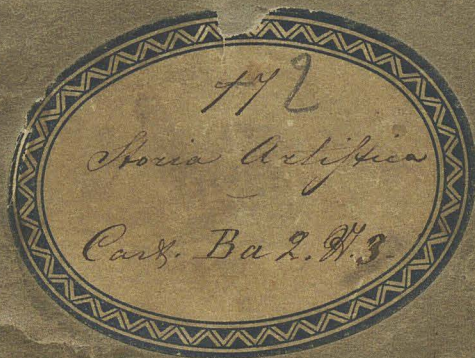 472
Storia Artistica
Cart. Ba 2. N. 3.